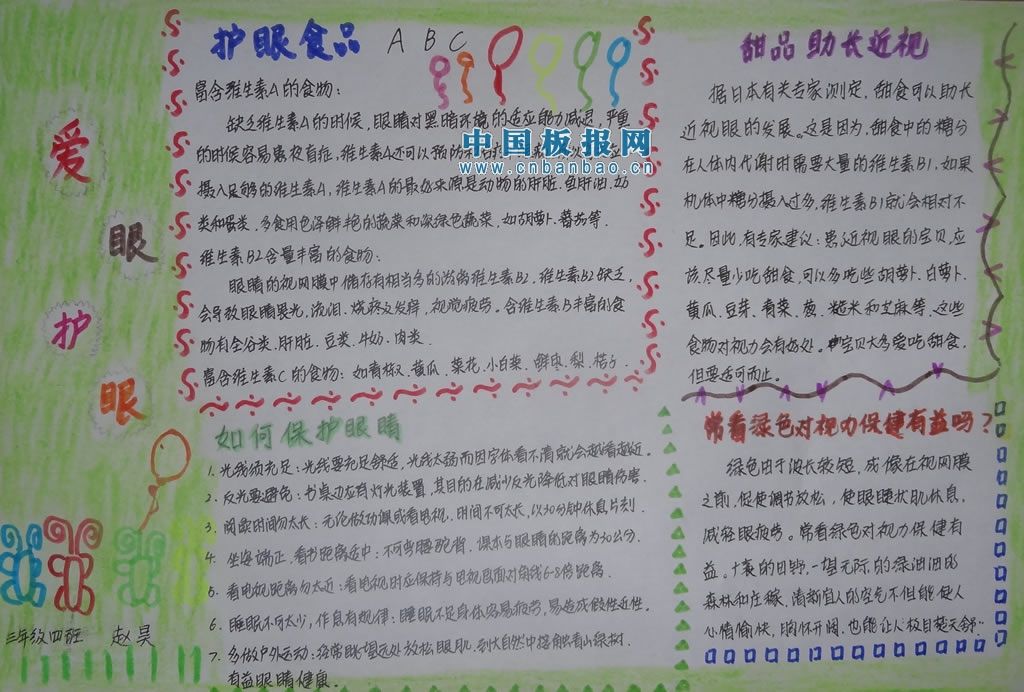 爱
眼
护
眼
三年级四班 赵昊
护眼食品 A B C
富含维生素A的食物:
缺乏维生素A的时候,眼睛对黑暗环境的适应能力减退,严重
的时候容易患夜盲症,维生素A还可以预防和治疗
中国板报网
www.cnbanbao.cn
摄入足够的维生素A,维生素A的最好来源是动物的肝脏,鱼肝油,奶
类和蛋类,多食用色泽鲜艳的蔬菜和深绿色蔬菜,如胡萝卜、蕃茄等.
维生素B2含量丰富的食物:
眼睛的视网膜中储存有相当多的游离维生素B2,维生素B2缺乏,
会导致眼睛畏光,流泪,烧疼及发痒,视觉疲劳。含维生素B丰富的食
物有全谷类.肝脏.豆类.牛奶.肉类.
富含维生素C的食物:如青椒、黄瓜、菜花、小白菜、鲜枣、梨、桔子.
甜品助长近视
据日本有关专家测定,甜食可以助长
近视眼的发展。这是因为,甜食中的糖分
在人体内代谢时需要大量的维生素B1,如果
机体中糖分摄入过多,维生素B1就会相对不
足。因此,有专家建议:患近视眼的宝贝,应
该尽量少吃甜食,可以多吃些胡萝卜、白萝卜、
黄瓜、豆芽、青菜、葱、糙米和芝麻等,这些
食物对视力会有好处。宝贝大多爱吃甜食,
但要适可而止。
如何保护眼睛
1. 光线须充足:光线要充足舒适,光线太弱而因字体看不清就会越看越近。
2. 反光要避免:书桌边应有灯光装置,其目的在减少反光降低对眼睛伤害.
3. 阅读时间勿太长:无论做功课或看电视,时间不可太长,以30分钟休息片刻.
4. 坐姿端正,看书距离适中:不可弯腰驼背,课本与眼睛的距离为30公分.
5. 看电视距离勿太近:看电视时应保持与电视画面对角线6-8倍距离.
6. 睡眠不可太少,作息有规律:睡眠不足身体容易疲劳,易造成假性近视.
7. 多做户外运动:经常眺望远处放松眼肌,到大自然中接触看小绿树.
有益眼睛健康.
常看绿色对视力保健有益吗?
绿色由于波长较短,成像在视网膜
之前,促使调节放松,使眼睫状肌休息,
减轻眼疲劳。常看绿色对视力保健有
益。广袤的田野,一望无际的绿油油的
森林和庄稼,清新宜人的空气不但能使人
心情愉快,胸怀开阔,也能让人极目楚天舒.